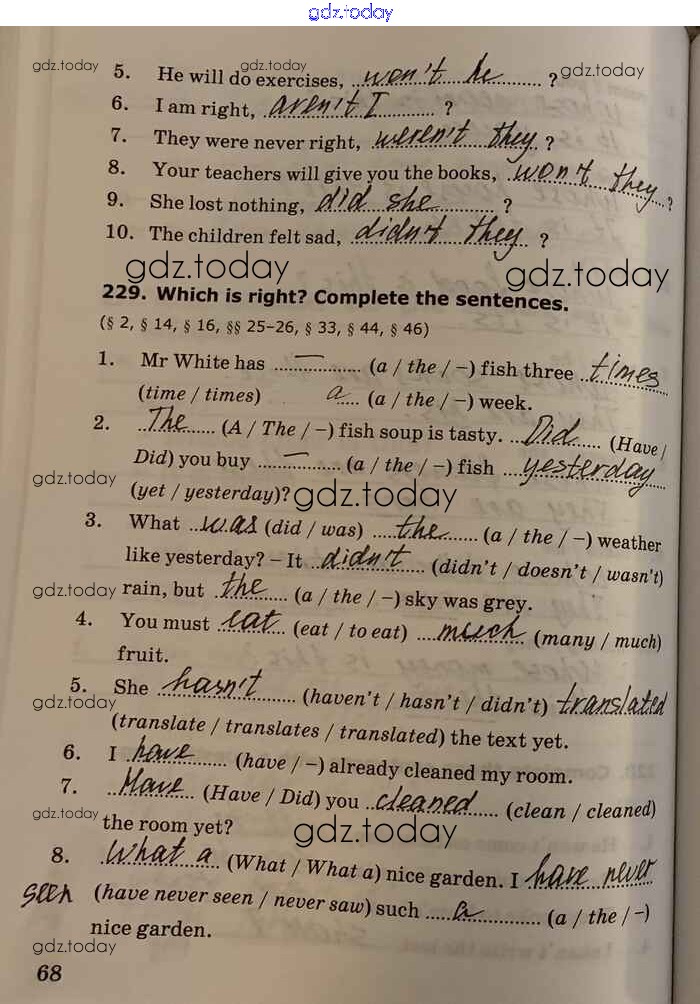 gdz.today
5. He will do exercises, ..won't he.......... ?
gdz.today gdz.today gdz.today
6. I am right, aren't I .......... ?
7. They were never right, weren't they. ?
8. Your teachers will give you the books, ..won't they....?
9. She lost nothing, did she .......... ?
10. The children felt sad, didn't they ... ?
gdz.today gdz.today
229. Which is right? Complete the sentences.
(§ 2, § 14, § 16, §§ 25–26, § 33, § 44, § 46)
1. Mr White has ....—.... (a / the / –) fish three ..times
(time / times) a.... (a / the / –) week.
2. ..The...... (A / The / –) fish soup is tasty. ...Did.... (Have /
Did) you buy ....—.... (a / the / –) fish ...yesterday
gdz.today
(yet / yesterday)? gdz.today
3. What ..was (did / was) .....the...... (a / the / –) weather
like yesterday? – It ..didn't.... (didn't / doesn't / wasn't)
gdz.today rain, but .the....... (a / the / –) sky was grey.
4. You must ..eat..... (eat / to eat) ....much (many / much)
fruit.
gdz.today gdz.today
5. She .hasn't........ (haven't / hasn't / didn't) translated
gdz.today
(translate / translates / translated) the text yet.
6. I .have....... (have / –) already cleaned my room.
7. ..Have...... (Have / Did) you ..cleaned.... (clean / cleaned)
gdz.today
the room yet? gdz.today
8. ..What a.. (What / What a) nice garden. I have never
seen (have never seen / never saw) such .....a....... (a / the / –)
nice garden.
gdz.today
68